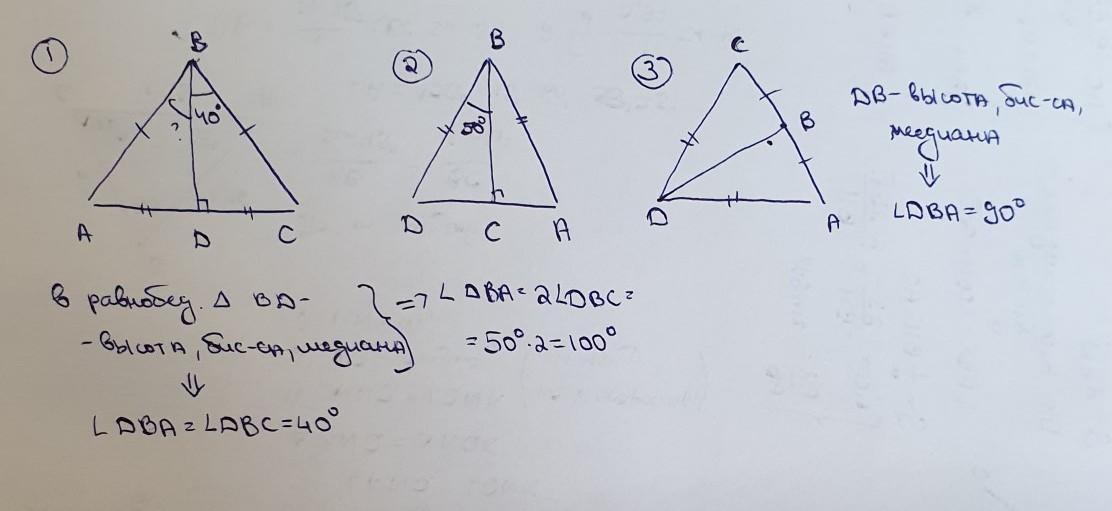 1
B
40°
?
A
D
C
2
B
50°
D
C
A
3
C
B
D
A
DB-высота, бис-са,
меедиана
⇓
∠DBA=90°
в равнобед. Δ BD-
-высота, бис-са, медиана
⇓
∠DBA=∠DBC=40°
=> ∠DBA=2∠DBC=
=50°·2=100°